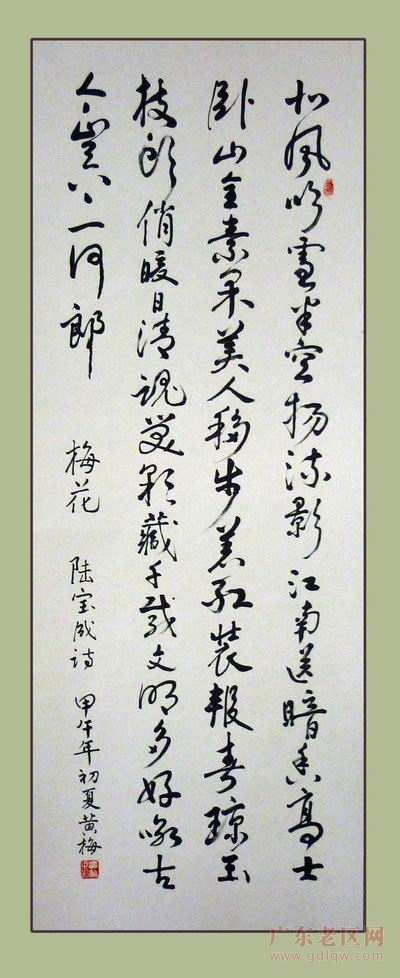 风吹雪半空扬疏影江南送暗香高士
卧山呈素采美人移步着红装报春琼玉
枝头俏暖日清魂藏千载文明多好咏古
人岂一何郎
梅花 陆宝成诗 甲午年初夏黄梅
广东老区网
www.gdlqw.com